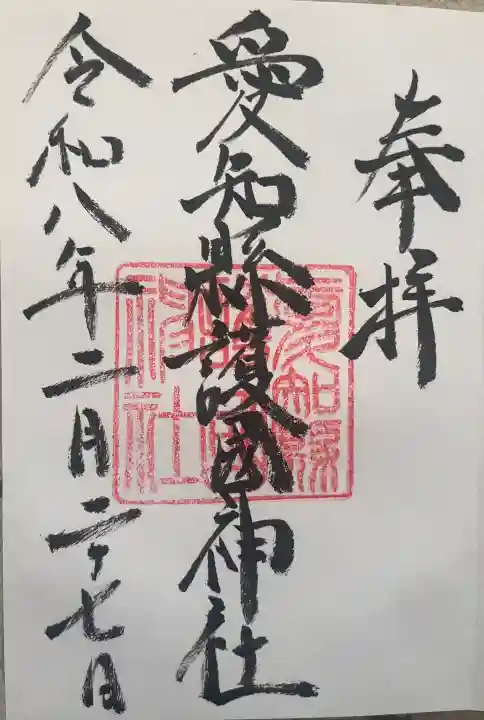 奉拝
愛知縣護國神社
愛知縣護國神社
令和八年二月二十七日